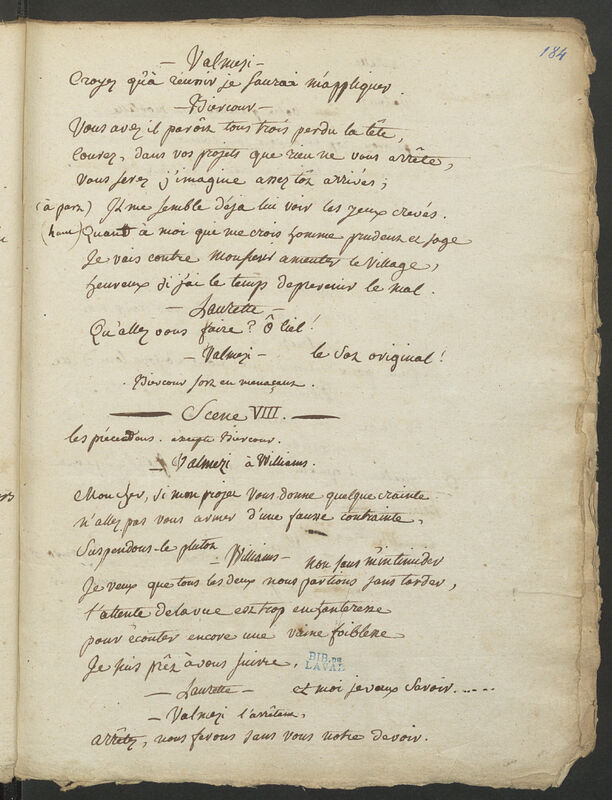 184
— Valmesi —
Croyez qu'à reussir je saurai m'appliquer.
— Biercour —
Vous avez il paroît tous trois perdu la tête,
Courez, dans vos projets que rien ne vous arrête,
Vous serez j'imagine assez tôt arrivés;
(à part) Il me semble déja lui voir les yeux crevés.
(haut) Quant à moi que me crois homme prudent et sage
Je vais contre Monsieur ameuter le village,
heureux si j'ai le temps deprevenir le mal.
— Laurette —
Qu'allez vous faire? Ô Ciel!
— Valmesi — le Sot original!
Biercour sort en menaçant.
— Scene VIII. —
les précedens. excepté Biercour.
— Valmesi à Williams.
Mon cher, si mon projet vous donne quelque crainte
n'allez pas vous armer d'une fausse contrainte,
Suspendons-le plutôt
— Williams — non sans m'intimider
Je veux que tous les deux nous partions sans tarder,
l'attente dela vue est trop enchanteresse
pour écouter encore une vaine foiblesse
Je suis prêt à vous suivre,
BIB. DE
LAVAL
— Laurette — et moi je veux savoir.....
— Valmesi l'arrêtant,
arrêtez, nous ferons sans vous notre devoir.